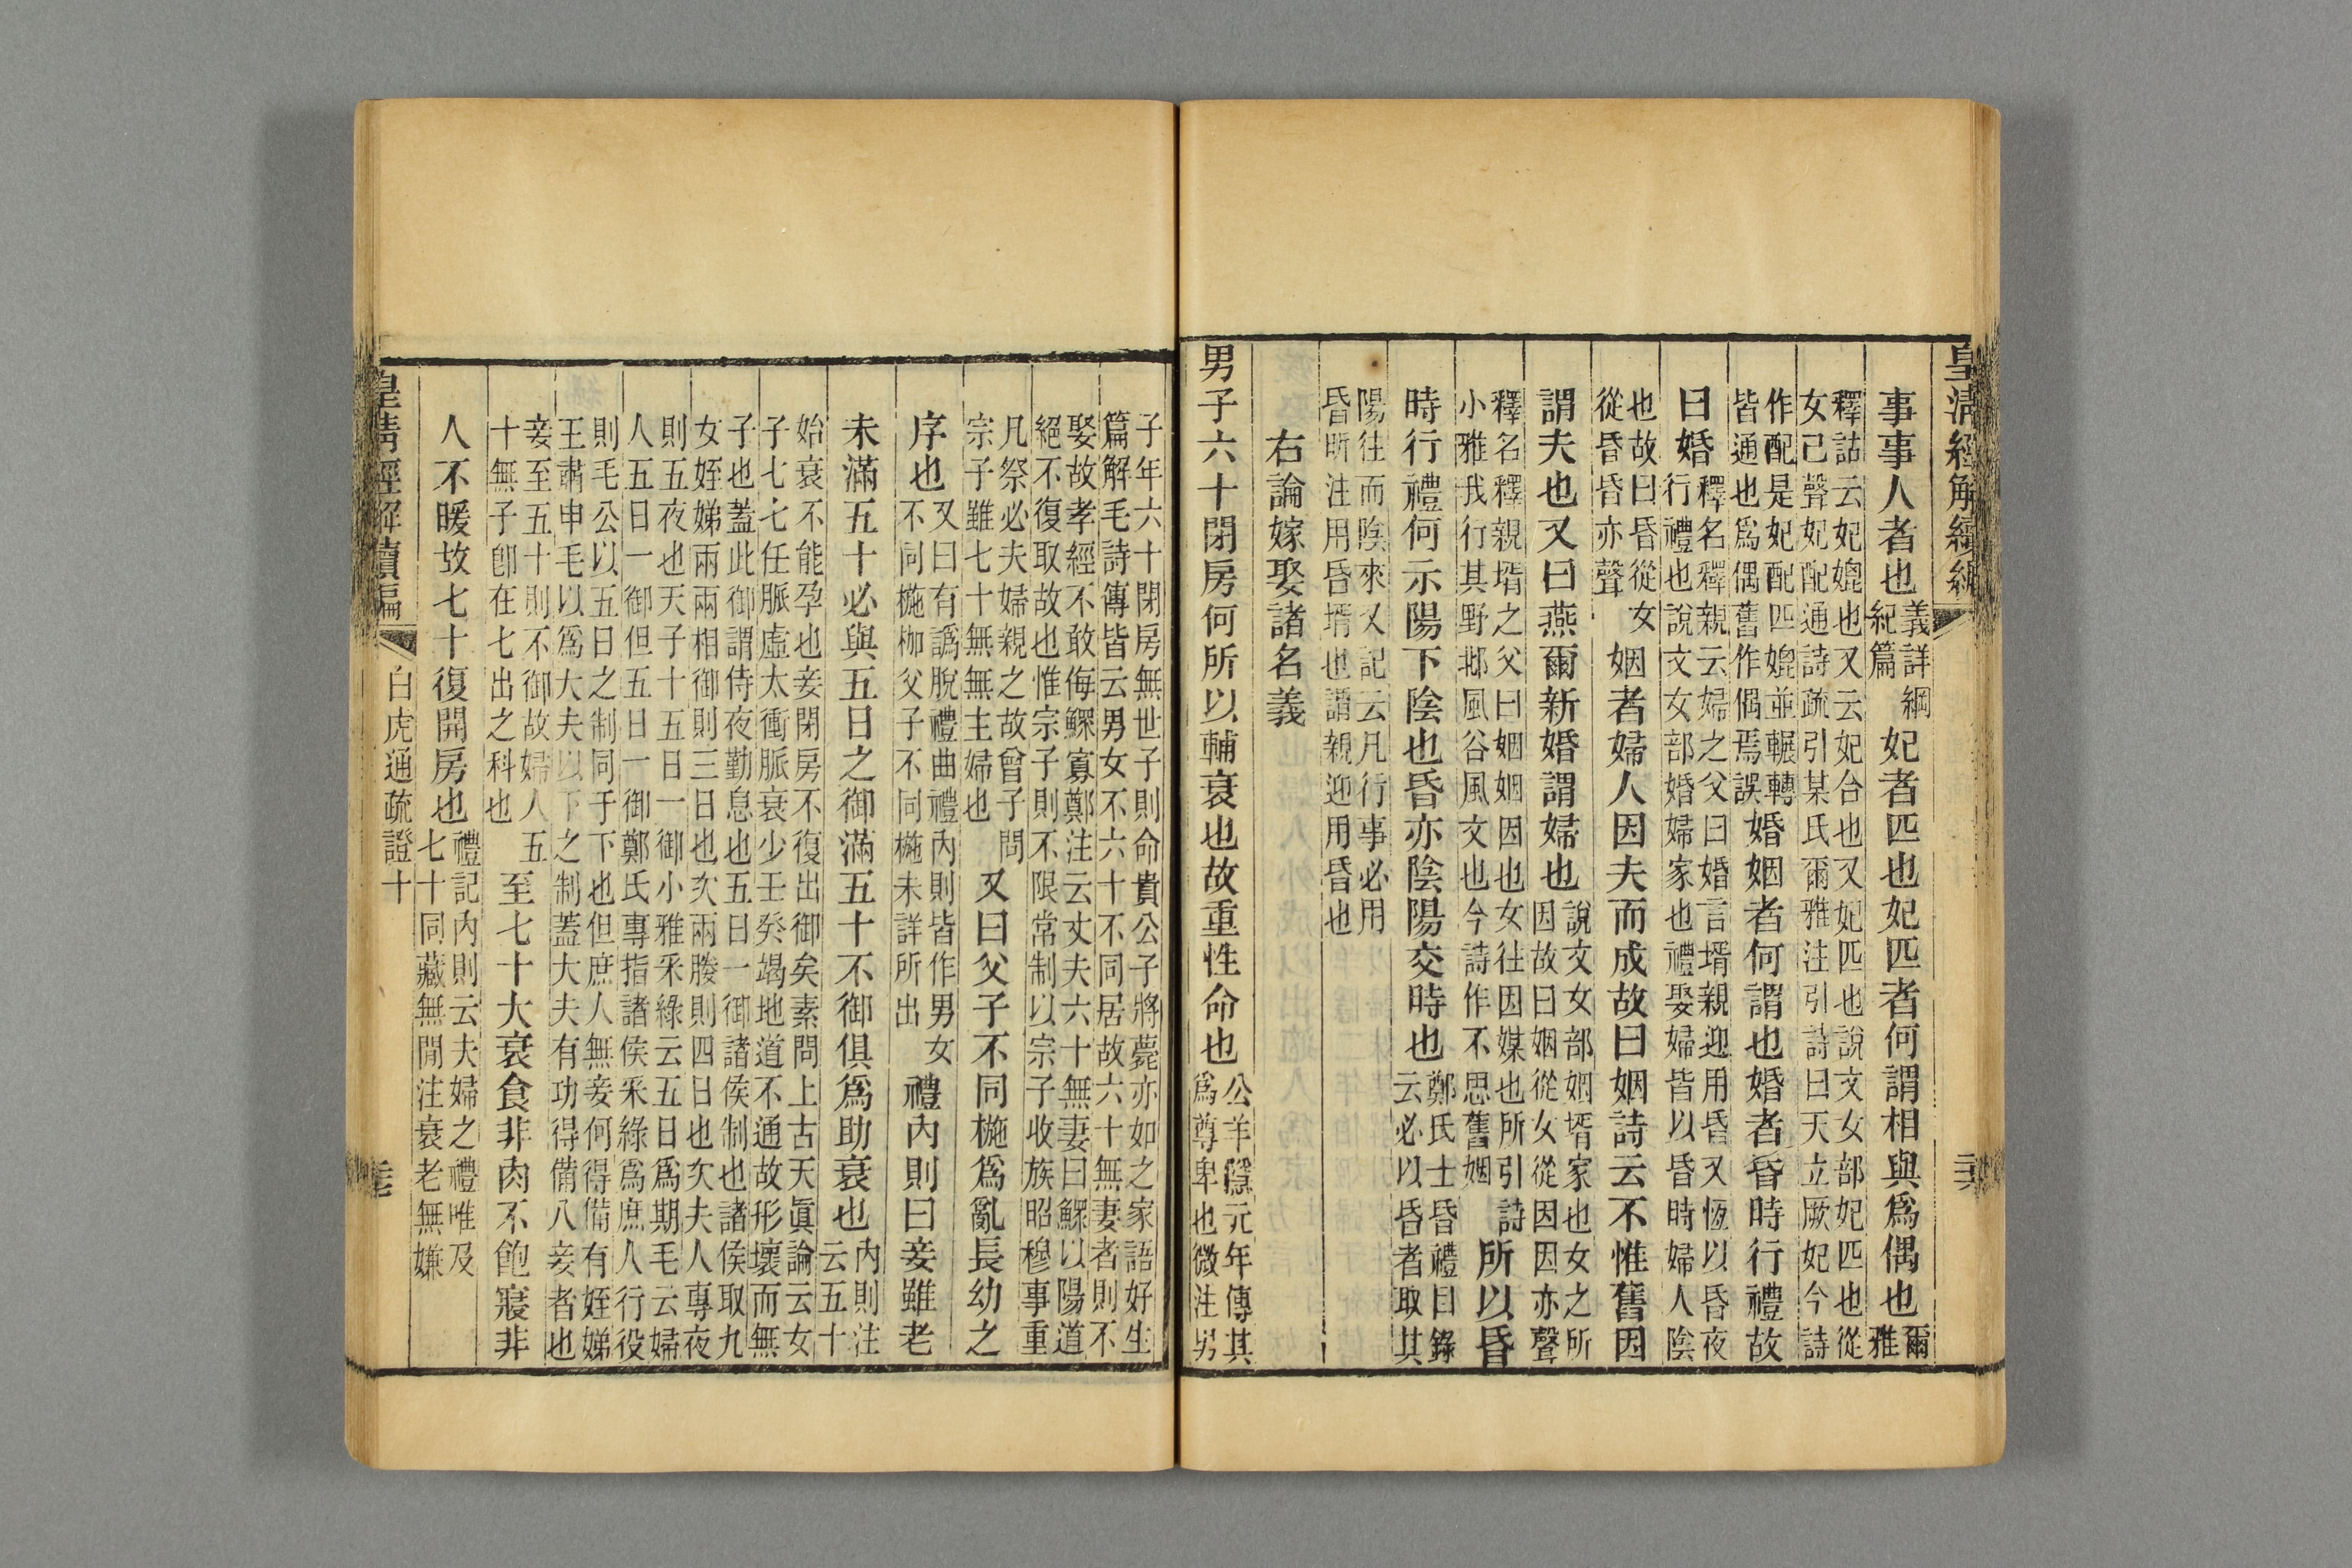 皇清經解續編
事事人者也義詳綱紀篇妃者匹也妃匹者何謂相與爲偶也爾雅
釋詁云妃媲也又云妃合也又妃匹也說文女部妃匹也從
女己聲妃配通詩疏引某氏爾雅注引詩曰天立厥妃今詩
作配是妃配匹媲並輾轉
皆通也爲偶舊作偶焉誤婚姻者何謂也婚者昏時行禮故
曰婚釋名釋親云婦之父曰婚言壻親迎用昏又恆以昏夜
行禮也說文女部婚婦家也禮娶婦皆以昏時婦人陰
也故曰昏從女
從昏昏亦聲姻者婦人因夫而成故曰姻詩云不惟舊因
謂夫也又曰燕爾新婚謂婦也說文女部姻壻家也女之所
因故曰姻從女從因因亦聲
釋名釋親壻之父曰姻姻因也女往因媒也所引詩
小雅我行其野邶風谷風文也今詩作不思舊姻所以昏
時行禮何示陽下陰也昏亦陰陽交時也鄭氏士昏禮目錄
云必以昏者取其
陽往而陰來又記云凡行事必用
昏昕注用昏壻也謂親迎用昏也
右論嫁娶諸名義
男子六十閉房何所以輔衰也故重性命也公羊隱元年傳其
爲尊卑也微注男
子年六十閉房無世子則命貴公子將薨亦如之家語好生
篇解毛詩傳皆云男女不六十不同居故六十無妻者則不
娶故孝經不敢侮鰥寡鄭注云丈夫六十無妻曰鰥以陽道
絕不復取故也惟宗子則不限常制以宗子收族昭穆事重
凡祭必夫婦親之故曾子問
宗子雖七十無無主婦也又曰父子不同椸爲亂長幼之
序也又曰有譌脫禮曲禮內則皆作男女
不同椸枷父子不同椸未詳所出禮內則曰妾雖老
未滿五十必與五日之御滿五十不御俱爲助衰也內則注
云五十
始衰不能孕也妾閉房不復出御矣素問上古天眞論云女
子七七任脈虛太衝脈衰少壬癸竭地道不通故形壞而無
子也蓋此御謂侍夜勤息也五日一御諸侯制也諸侯取九
女姪娣兩兩相御則三日也次兩媵則四日也次夫人專夜
則五夜也天子十五日一御小雅采綠云五日爲期毛云婦
人五日一御但五日一御鄭氏專指諸侯采綠爲庶人行役
則毛公以五日之制同于下也但庶人無妾何得備有姪娣
王肅申毛以爲大夫以下之制蓋大夫有功得備八妾者也
妾至五十則不御故婦人五
十無子卽在七出之科也至七十大衰食非肉不飽寢非
人不暖故七十復開房也禮記內則云夫婦之禮唯及
七十同藏無閒注衰老無嫌
皇清經解續編
白虎通疏證十